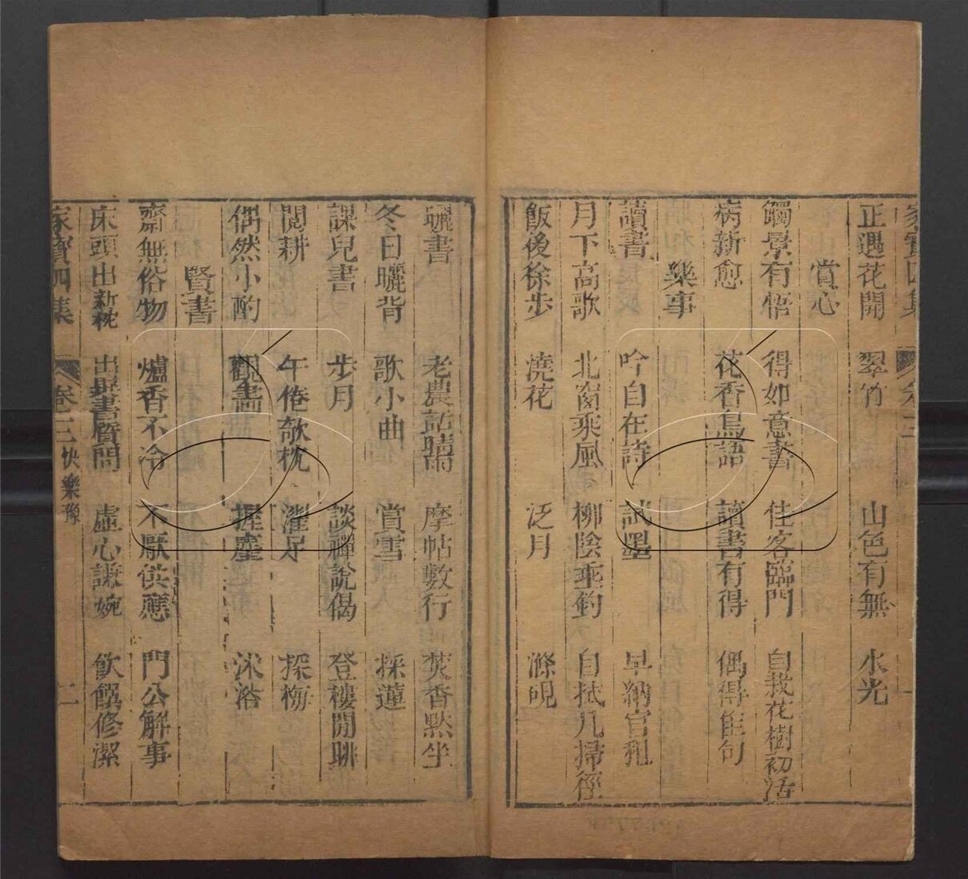 家寶四集 卷三 一
正遇花開 翠竹 山色有無 水光
賞心
觸景有悟 得如意書 佳客臨門 自栽花樹初活
病新愈 花香鳥語 讀書有得 偶得佳句
樂事
讀書 吟自在詩 試墨 早納官租
月下高歌 北窗乘風 柳陰垂釣 自拭几掃徑
飯後徐步 澆花 泛月 滌硯
曬書 老農話晴雨 摩帖數行 焚香默坐
冬日曬背 歌小曲 賞雪 採蓮
課兒書 步月 談禪說偈 登樓閒眺
閱耕 午倦欹枕 濯足 探梅
偶然小酌 觀畫 握麈 沐浴
賢書
齋無俗物 爐香不冷 不厭供應 門公解事
床頭出新秫 出聚書質問 虛心謙婉 飲饌修潔
家寶四集 卷三 快樂豫 二